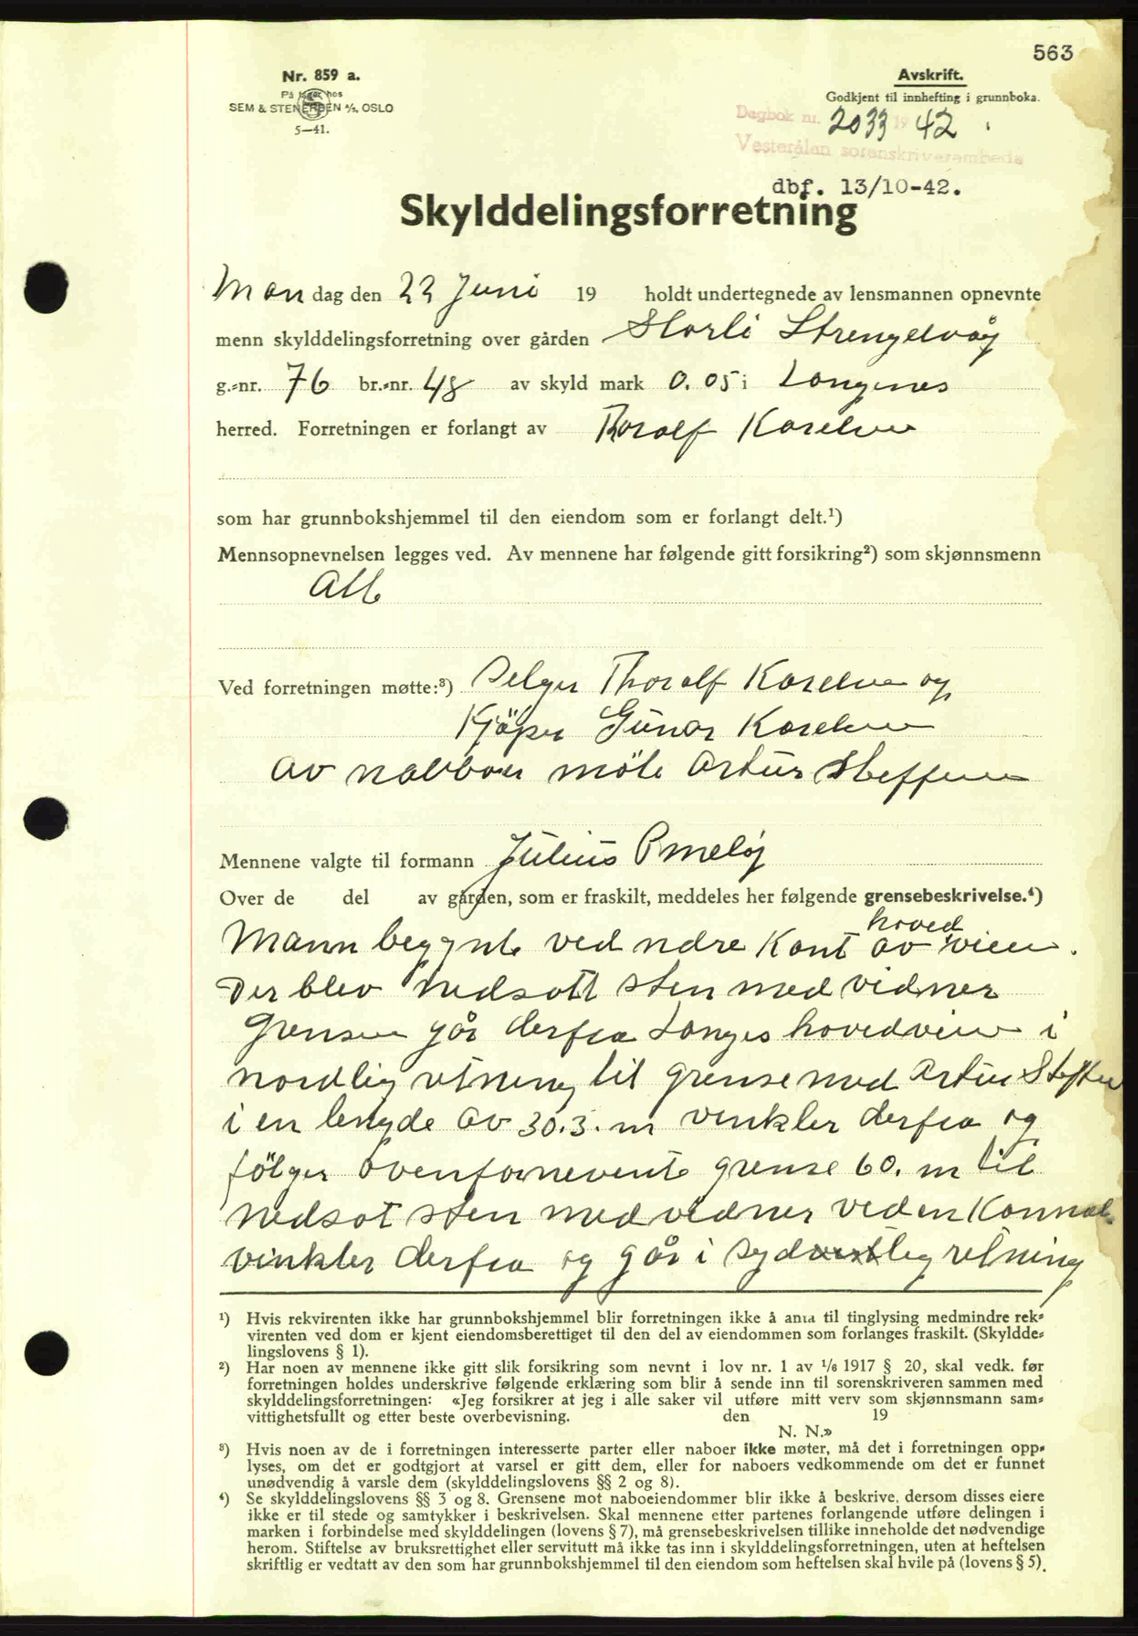 563
Nr. 859 a.
På lager hos
SEM & STENERSEN A/S. OSLO
5—41.
Avskrift.
Godkjent til innhefting i grunnboka.
Dagbok nr. 2033 19 42
Vesterålen sorenskriverembede
dbf. 13/10-42.
Skylddelingsforretning
Mandag den 22 Juni 19 holdt undertegnede av lensmannen opnevnte
menn skylddelingsforretning over gården Storli Strengelvåg
g.-nr. 76 br.-nr. 48 av skyld mark 0.05 i Langenes
herred. Forretningen er forlangt av Thoralf Karelsen
som har grunnbokshjemmel til den eiendom som er forlangt delt.¹)
Mennsopnevnelsen legges ved. Av mennene har følgende gitt forsikring²) som skjønnsmenn
Alle
Ved forretningen møtte:³) Selger Thoralf Karelsen og
Kjöper Gunar Karelsen
av naboer møte Artur Steffensen
Mennene valgte til formann Julius
Over de del av gården, som er fraskilt, meddeles her følgende grensebeskrivelse.⁴)
hoved
Mann begynte ved nedre Kant av veien.
Der blev nedsatt sten med vidner
Grensen går derfra Langs hovedveien i
nordlig retning til grense med Artur Steffen
i en lengde av 30.3. m vinkler derfra og
følger ovenfornevente grense 60. m til
nedsat sten med vidner ved en Kannal
vinkler derfra og går i sydvestleg retning
¹) Hvis rekvirenten ikke har grunnbokshjemmel blir forretningen ikke å anta til tinglysing medmindre rek-
virenten ved dom er kjent eiendomsberettiget til den del av eiendommen som forlanges fraskilt. (Skyldde-
lingslovens § 1).
²) Har noen av mennene ikke gitt slik forsikring som nevnt i lov nr. 1 av 1/6 1917 § 20, skal vedk. før
forretningen holdes underskrive følgende erklæring som blir å sende inn til sorenskriveren sammen med
skylddelingsforretningen: «Jeg forsikrer at jeg i alle saker vil utføre mitt verv som skjønnsmann sam-
vittighetsfullt og etter beste overbevisning. den 19
N. N.»
³) Hvis noen av de i forretningen interesserte parter eller naboer ikke møter, må det i forretningen opp-
lyses, om det er godtgjort at varsel er gitt dem, eller for naboers vedkommende om det er funnet
unødvendig å varsle dem (skylddelingslovens §§ 2 og 8).
⁴) Se skylddelingslovens §§ 3 og 8. Grensene mot naboeiendommer blir ikke å beskrive, dersom disses eiere
ikke er til stede og samtykker i beskrivelsen. Skal mennene etter partenes forlangende utføre delingen i
marken i forbindelse med skylddelingen (lovens § 7), må grensebeskrivelsen tillike inneholde det nødvendige
herom. Stiftelse av bruksrettighet eller servitutt må ikke tas inn i skylddelingsforretningen, uten at heftelsen
skriftlig er vedtatt av den som har grunnbokshjemmel til den eiendom som heftelsen skal hvile på (lovens § 5).